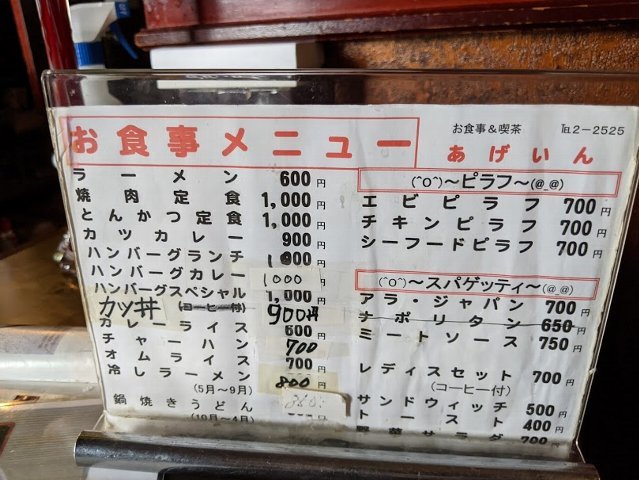 お食事メニュー
お食事&喫茶 ℡2-2525
あげいん
ラーメン 600円
焼肉定食 1,000円
とんかつ定食 1,000円
カツカレー 900円
ハンバーグランチ 円
ハンバーグカレー 1000
ハンバーグスペシャル 1,000円
(コーヒー付)
カツ丼 900円
カレーライス 600円
チャーハン 700円
オムライス 700円
冷しラーメン 800円
(5月~9月)
鍋焼きうどん 円
(10月~4月)
(^O^)~ピラフ~(@_@)
エビピラフ 700円
チキンピラフ 700円
シーフードピラフ 700円
(^O^)~スパゲッティ~(@_@)
アラ・ジャパン 700円
ナポリタン 650円
ミートソース 750円
レディスセット 700円
(コーヒー付)
サンドウィッチ 500円
トースト 400円
野菜サラダ 700円